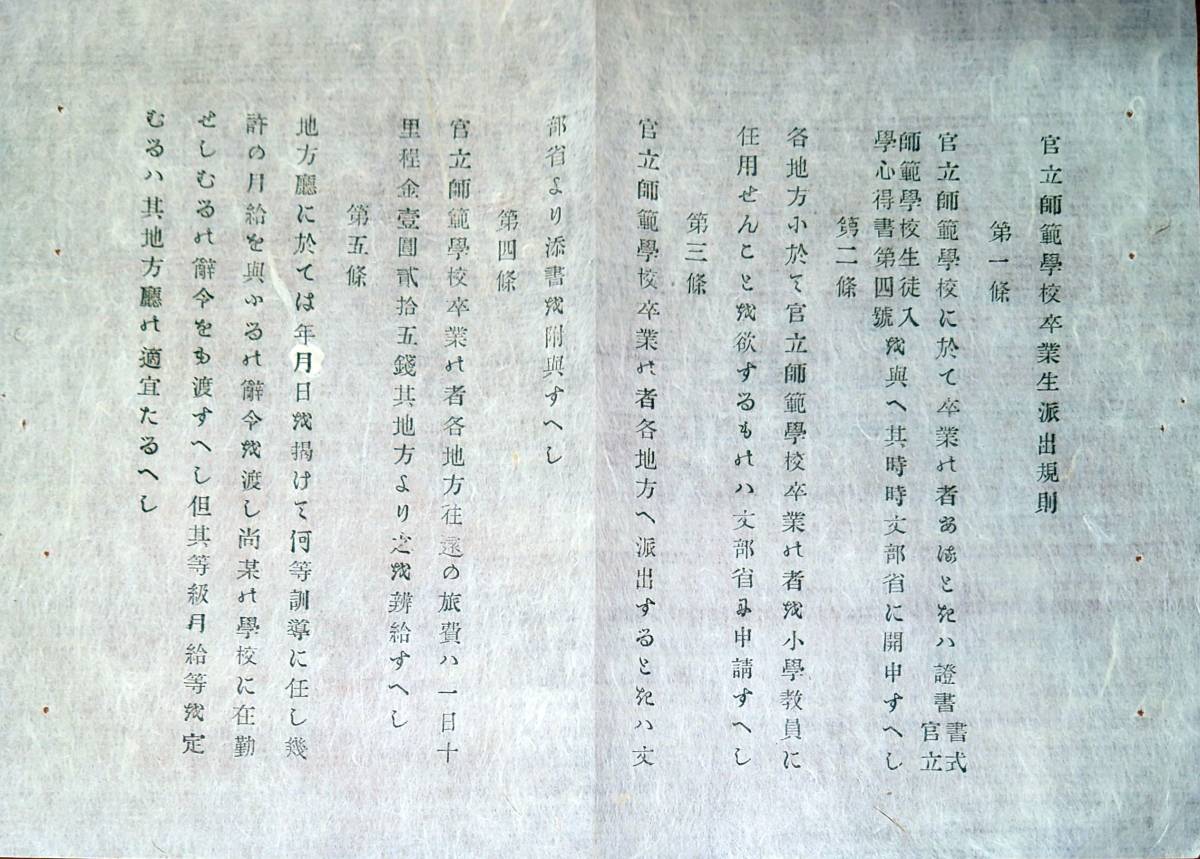 官立師範學校卒業生派出規則
第一條
官立師範學校に於て卒業の者あるときハ證書書式官立
師範學校生徒入學心得書第四號を與へ其時時文部省に開申すへし
第二條
各地方に於て官立師範學校卒業の者を小學教員に
任用せんことを欲するものハ文部省に申請すへし
第三條
官立師範學校卒業の者各地方へ派出するときハ文
部省より添書を附與すへし
第四條
官立師範學校卒業の者各地方往遠の旅費ハ一日十
里程金壹圓貳拾五錢其地方より之を辨給すへし
第五條
地方廳に於ては年月日を揭けて何等訓導に任し幾
許の月給を與ふるの辭令を渡し尚某の學校に在勤
せしむるの辭令をも渡すへし但其等級月給等を定
むるハ其地方廳の適宜たるへし